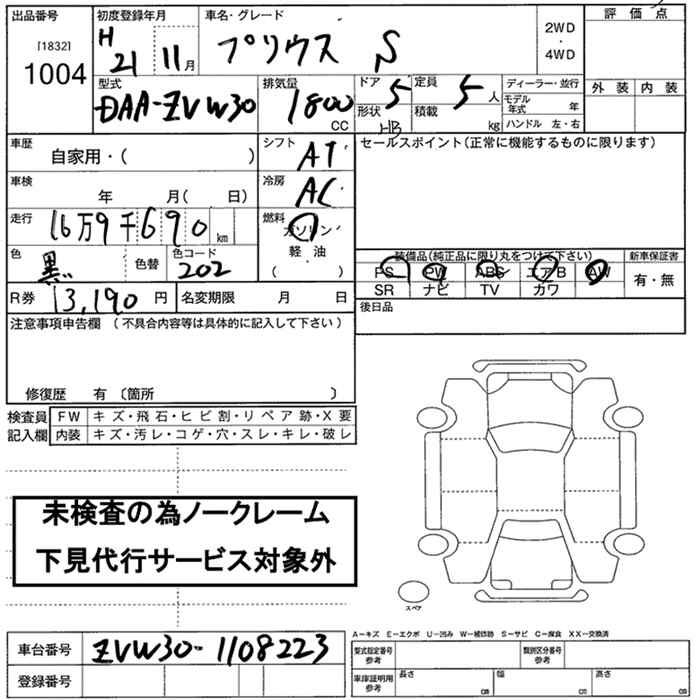 出品番号 初度登録年月 車名・グレード 評価点
[1832] 1004 H 21 11月 プリウス S 2WD・4WD
外装 内装
型式 排気量 ドア 5 定員 5人 ディーラー・並行
DAA-ZVW30 1800 CC 形状 HB 積載 kg モデル年式 年
ハンドル 左・右
車歴 自家用・( ) シフト AT セールスポイント(正常に機能するものに限ります)
車検 年 月( 日) 冷房 AC
走行 16万9千690km 燃料 ガソリン
軽油
( )
色 黒 色替 色コード 202
装備品(純正品に限り丸をつけて下さい) 新車保証書
PS PW ABS エアB AW 有・無
SR ナビ TV カワ
R券 13,190円 名変期限 月 日 後日品
注意事項申告欄(不具合内容等は具体的に記入して下さい)
修復歴 有 〔箇所 〕
検査員 FW キズ・飛石・ヒビ割・リペア跡・X要
記入欄 内装 キズ・汚レ・コゲ・穴・スレ・キレ・破レ
未検査の為ノークレーム
下見代行サービス対象外
スペア
A-キズ E-エクボ U-凹み W-補修跡 S-サビ C-腐食 XX-交換済
車台番号 ZVW30-1108223 型式指定番号参考 類別区分番号参考
登録番号 車庫証明用参考 長さ cm 幅 cm 高さ cm